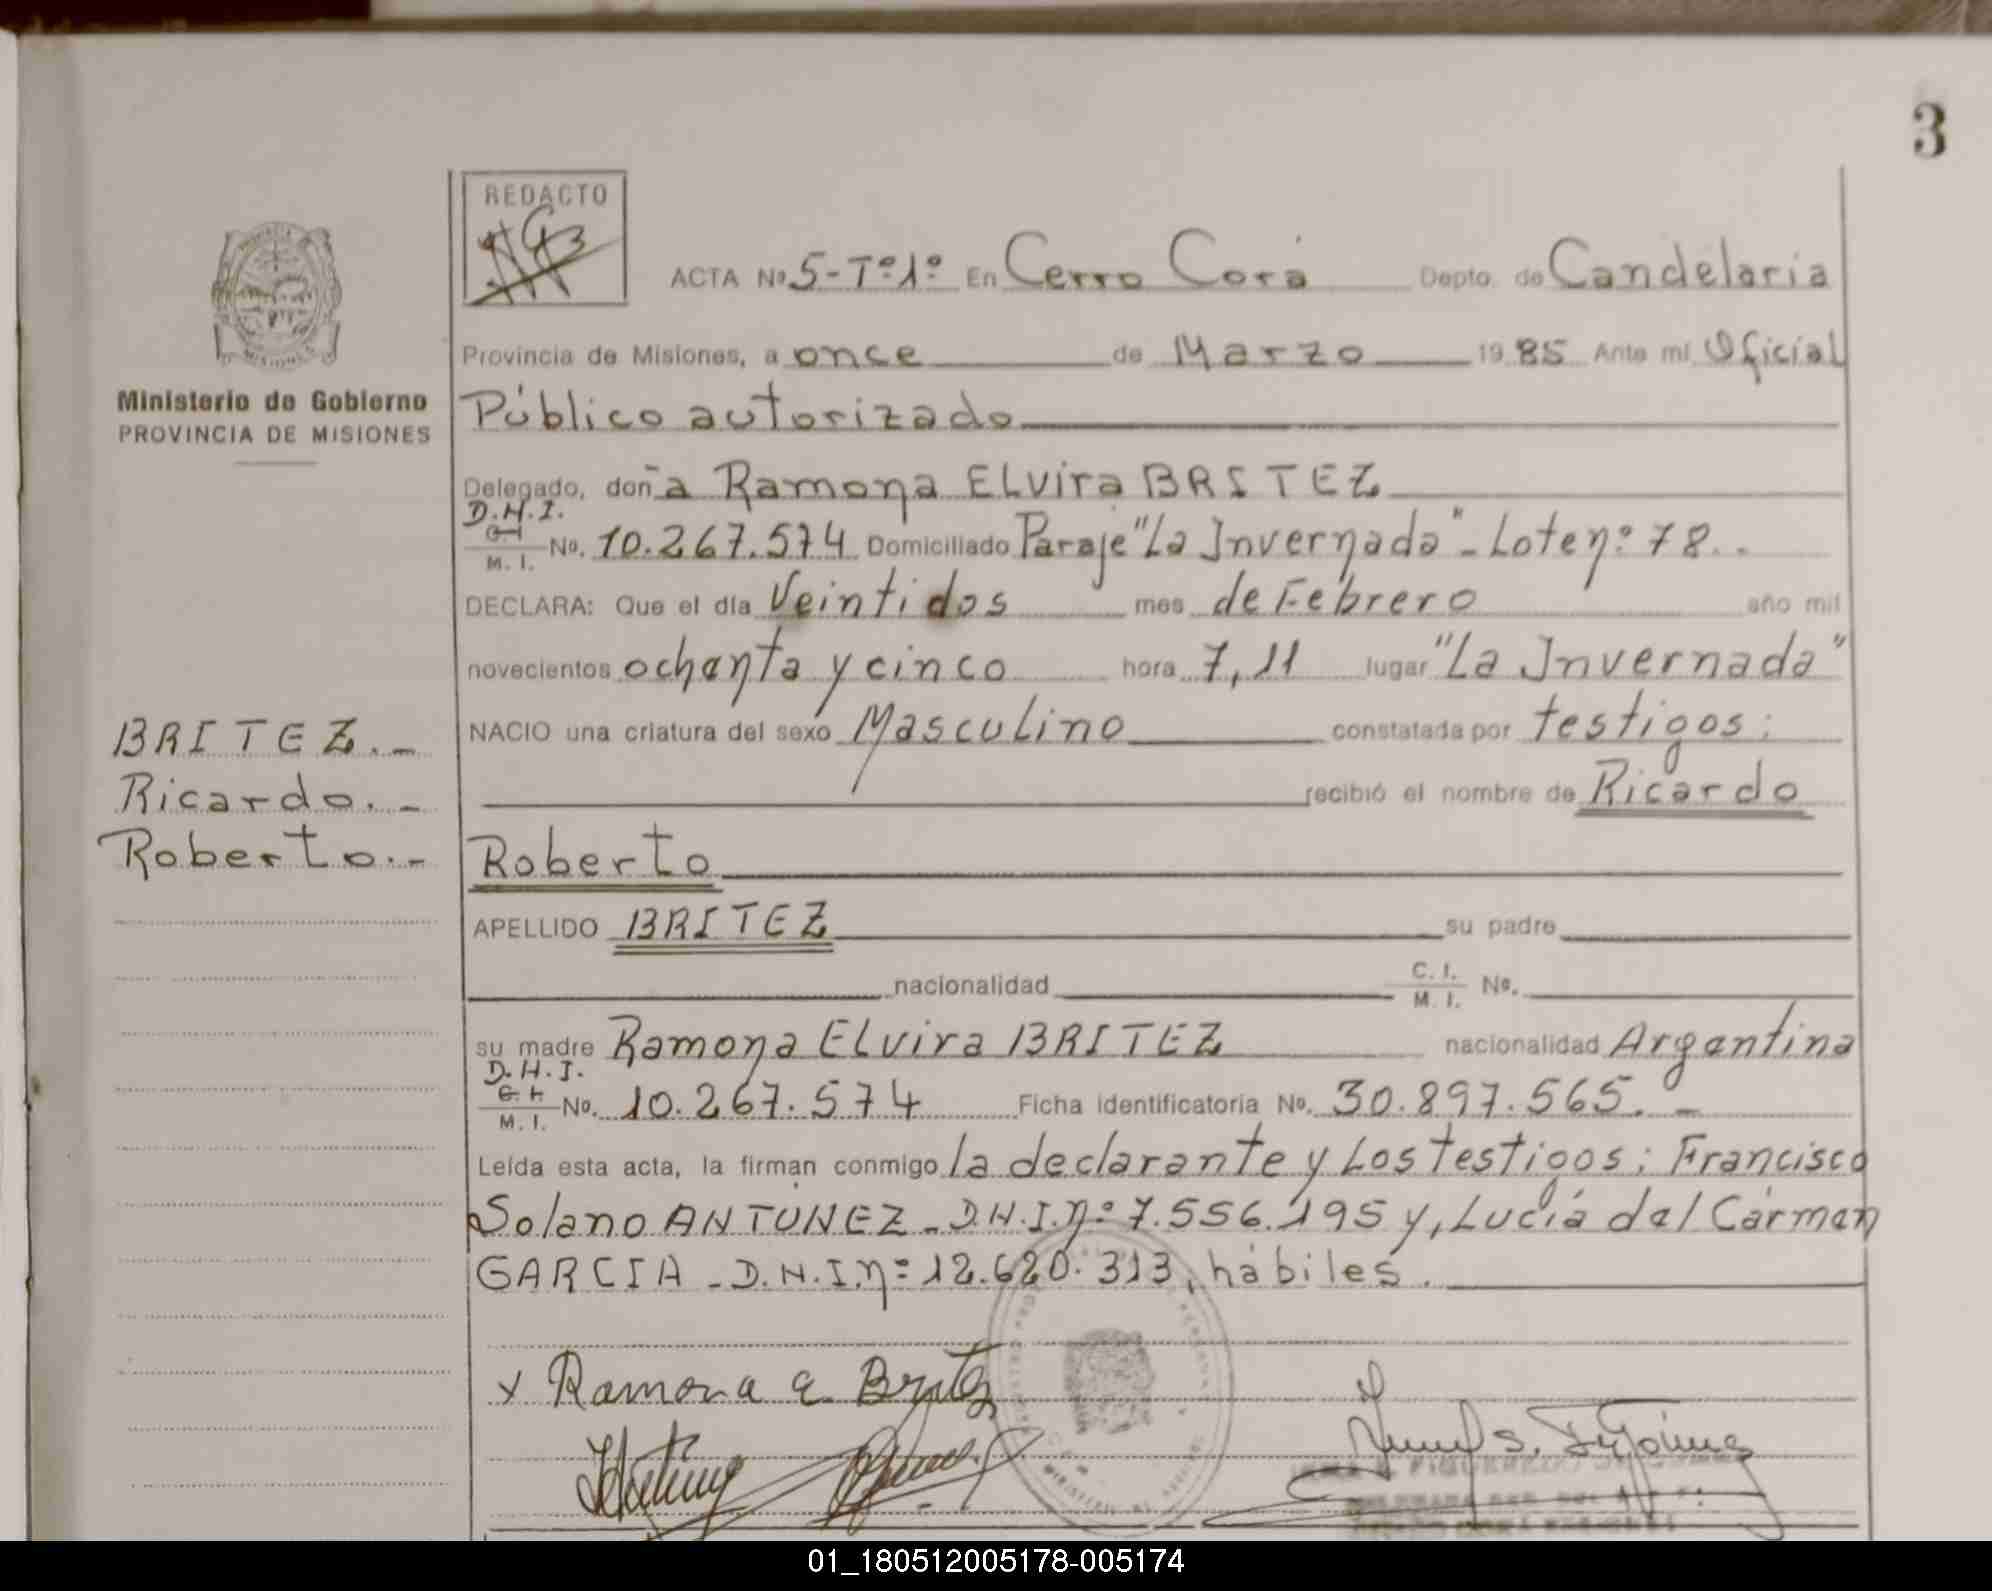 3
REDACTO
ACTA Nº 5-Tº1º En Cerro Corá Depto. de Candelaria
Provincia de Misiones, a once de Marzo 1985 Ante mí Oficial
Público autorizado
Ministerio de Gobierno
PROVINCIA DE MISIONES
Delegado, doña Ramona ELvira BRITEZ
D.N.I.
C.I.
M. I. No. 10.267.574 Domiciliado Paraje "La Invernada" - Lote nº 78..
DECLARA: Que el día Veintidos mes de Febrero año mil
novecientos ochenta y cinco hora 7,11 lugar "La Invernada"
NACIO una criatura del sexo Masculino constatada por testigos;
recibió el nombre de Ricardo
Roberto
BRITEZ.-
Ricardo.-
Roberto.-
APELLIDO BRITEZ su padre
nacionalidad C. I. M. I. No.
su madre Ramona Elvira BRITEZ nacionalidad Argentina
D.N.I.
C.I.
M. I. No. 10.267.574 Ficha identificatoria No. 30.897.565.-
Leída esta acta, la firman conmigo la declarante y Los testigos; Francisco
Solano ANTUNEZ - D.N.I.nº 7.556.195 y, Lucía del Cármen
GARCIA - D.N.I.nº 12.620.313, hábiles.
x Ramona E Britez
FIGUEREDO
01_180512005178-005174